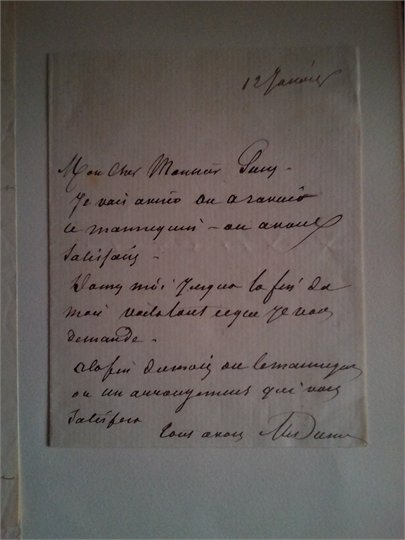 12 Janvier
Mon Cher Monsieur
Je vais arriver ou a ravoir
le mannequin – ou a vous
Satisfaire
moi jusqua la fin du
mois voila tout ceque Je vous
demande –
a la fin du mois ou le mannequin
ou un arrangement qui vous
Satisfera
Tous a vous